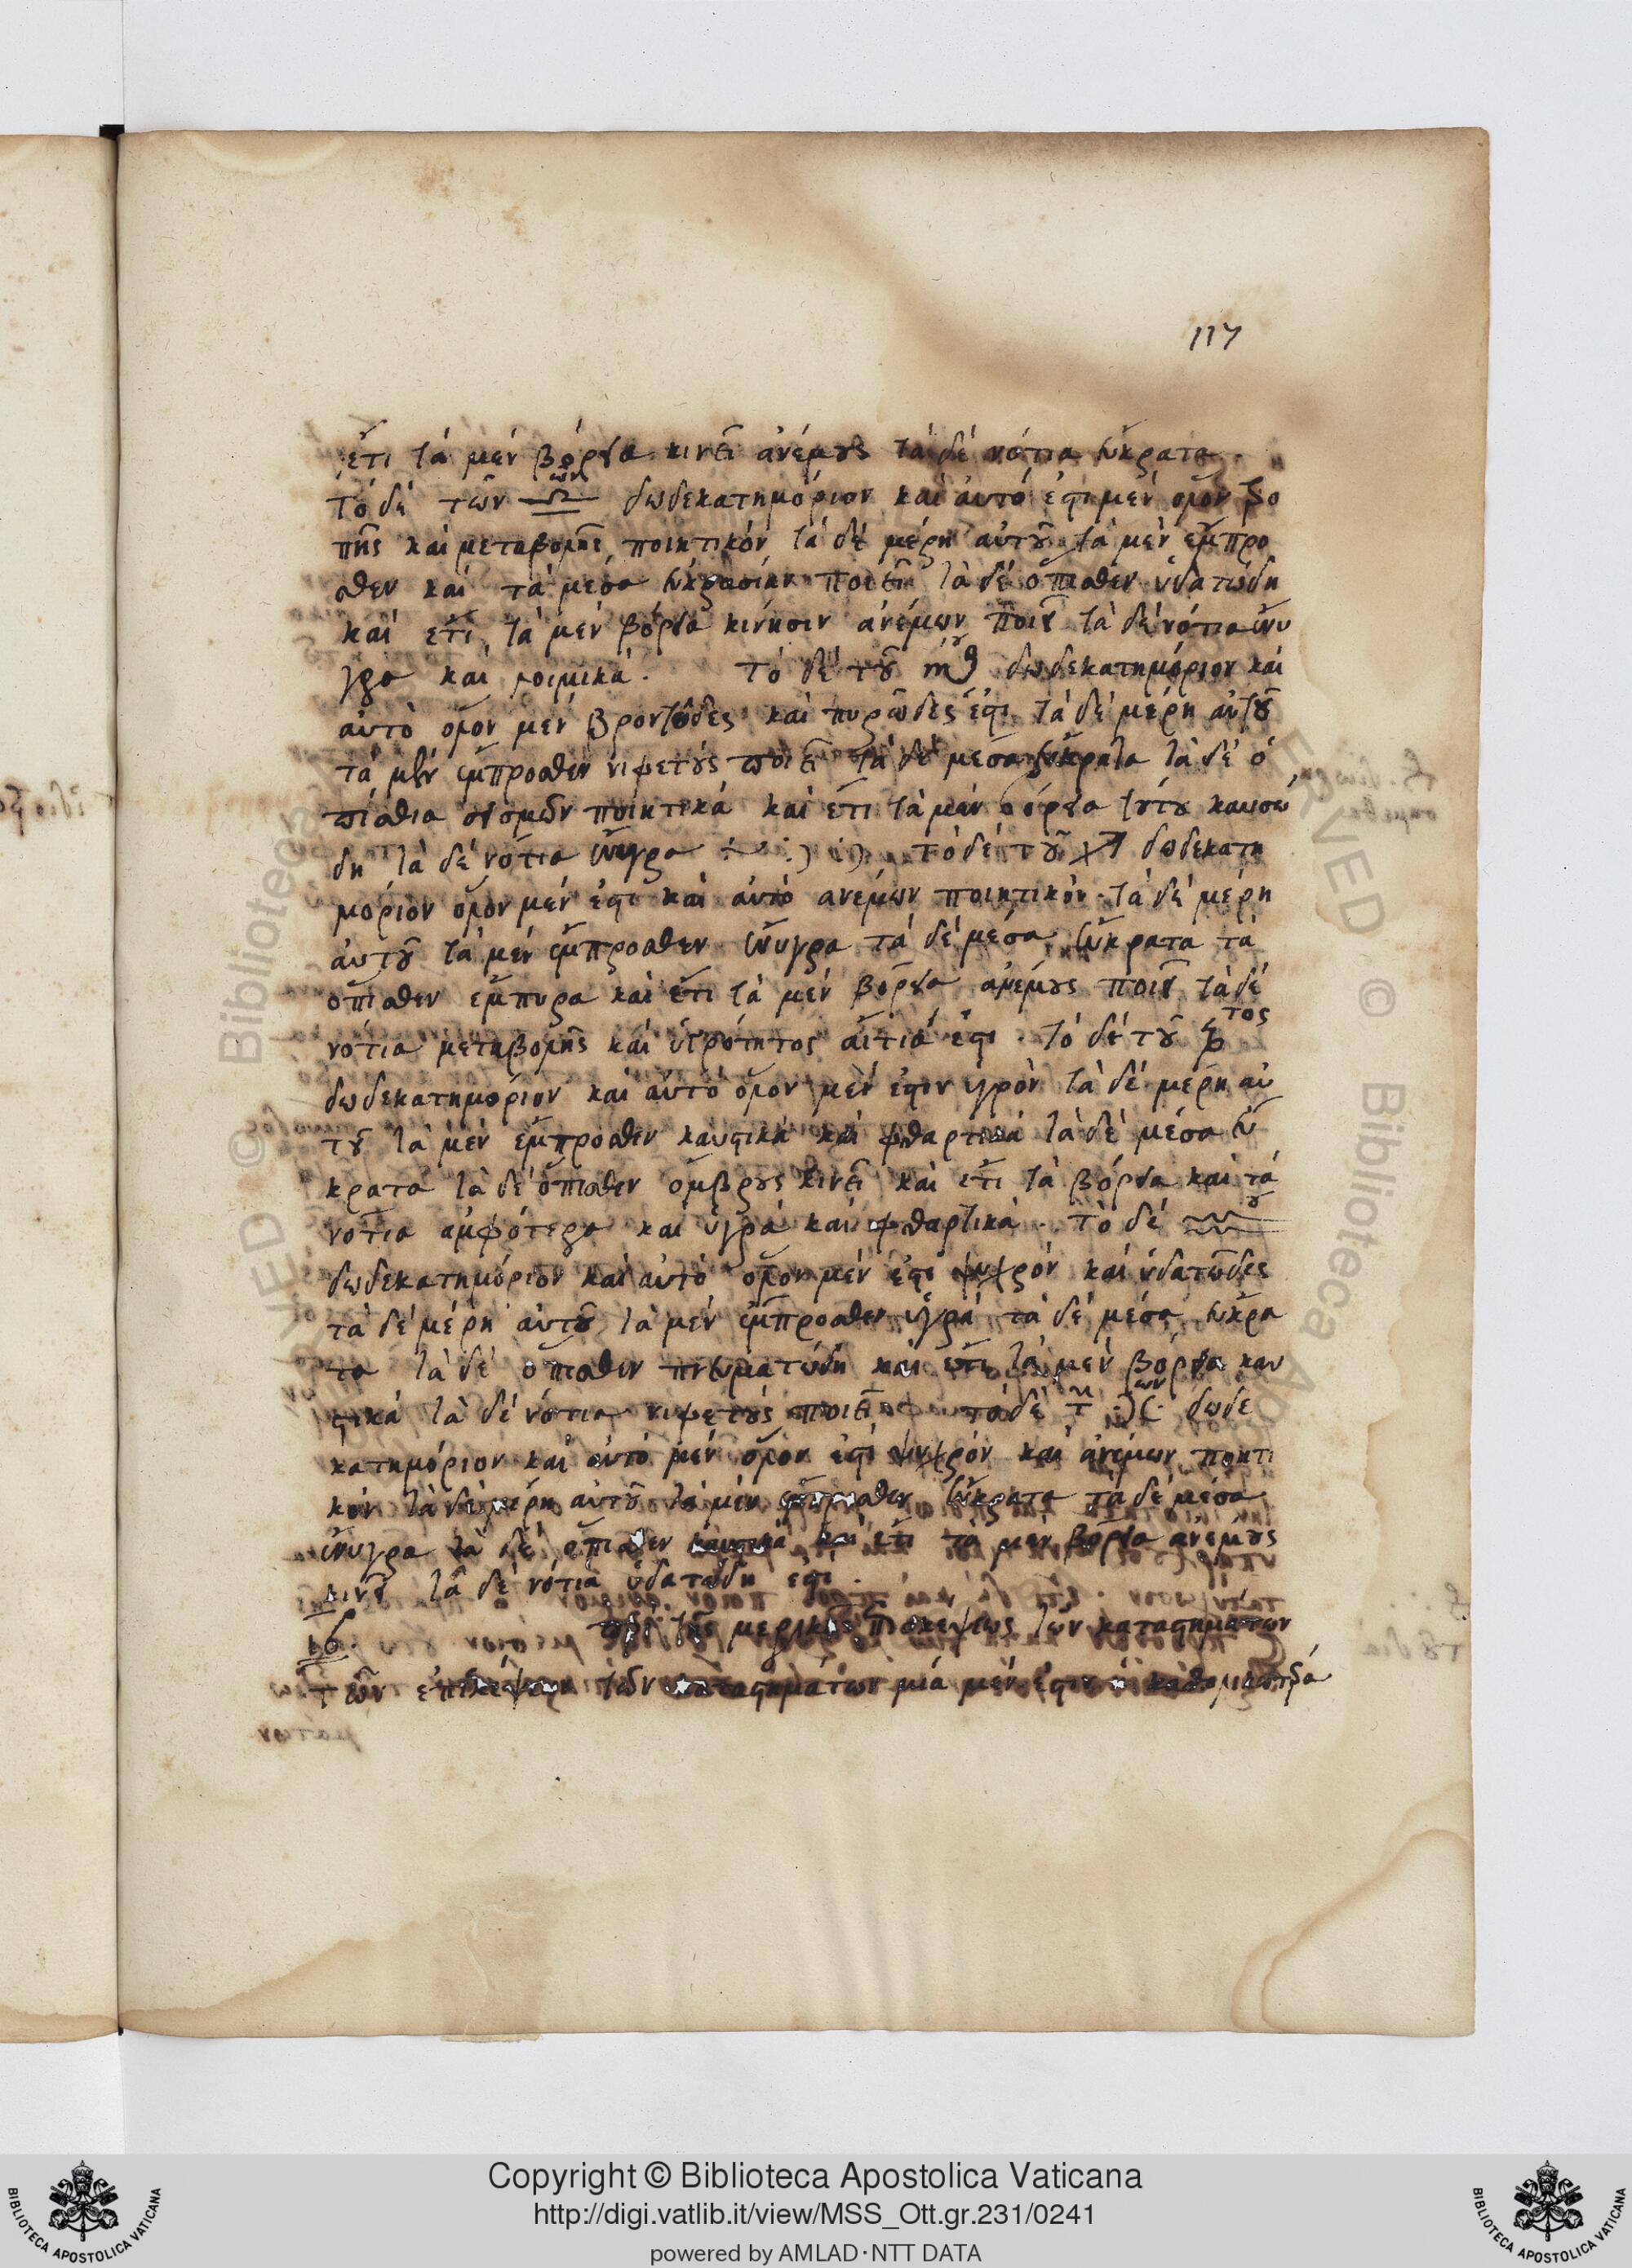 117
ἔτι τὰ μὲν βόρεια κινεῖ ἀνέμους τὰ δὲ νότια εὔκρατα.
Τὸ δὲ τῶν ♎ων δωδεκατημόριον καὶ αὐτό ἐστι μὲν ὅλον
πῆς καὶ μεταβολῆς ποιητικόν τὰ δὲ μέρη αὐτοῦ τὰ μὲν ἔμπρο
σθεν καὶ τὰ μέσα εὐκρασίαν ποιεῖ τὰ δὲ ὄπισθεν ὑδατώδη
καὶ ἔτι τὰ μὲν βόρεια κίνησιν ἀνέμων ποιεῖ τὰ δὲ νότια ἔνυ
γρα καὶ λοιμικά. Τὸ δὲ τοῦ ♏ου δωδεκατημόριον καὶ
αὐτὸ ὅλον μὲν βροντῶδες καὶ πυρῶδες ἐστι τὰ δὲ μέρη αὐτοῦ
τὰ μὲν ἔμπροσθεν νιφετοὺς ποιεῖ τὰ δὲ μέσα εὔκρατα τὰ δὲ ὀ
πίσθια σεισμῶν ποιητικά καὶ ἔτι τὰ μὲν βόρεια τούτου καυσώ
δη τὰ δὲ νότια ἔνυγρα τὸ δὲ τοῦ ♐ δωδεκατη
μόριον ὅλον μέν ἐστι καὶ αὐτὸ ἀνέμων ποιητικόν. τὰ δὲ μέρη
αὐτοῦ τὰ μὲν ἔμπροσθεν ἔνυγρα τὰ δὲ μέσα εὔκρατα τὰ
ὄπισθεν ἔμπυρα καὶ ἔτι τὰ μὲν βόρεια ἀνέμους ποιεῖ τὰ δὲ
νότια μεταβολῆς καὶ ὑγρότητος αἴτιά ἐστι. τὸ δὲ τοῦ ♑τος
δωδεκατημόριον καὶ αὐτὸ ὅλον μέν ἐστιν ὑγρὸν τὰ δὲ μέρη αὐ
τοῦ τὰ μὲν ἔμπροσθεν καυστικὰ καὶ φθαρτικά τὰ δὲ μέσα εὔ
κρατα τὰ δὲ ὄπισθεν ὄμβρους κινεῖ καὶ ἔτι τὰ βόρεια καὶ τὰ
νότια ἀμφότερα καὶ ὑγρὰ καὶ φθαρτικά. τὸ δὲ ♒ου
δωδεκατημόριον καὶ αὐτὸ ὅλον μέν ἐστι ψυχρόν καὶ ὑδατῶδες
τὰ δὲ μέρη αὐτοῦ τὰ μὲν ἔμπροσθεν ὑγρά τὰ δὲ μέσα εὔκρα
τα τὰ δὲ ὄπισθεν πνευματώδη καὶ ἔτι τὰ μὲν βόρεια καυ
στικὰ τὰ δὲ νότια νιφετοὺς ποιεῖ τὸ δὲ τ ♓ων δωδε
κατημόριον καὶ αὐτὸ μὲν ὅλον ἐστὶ ψυχρόν καὶ ἀνέμων ποητι
κόν τὰ δὲ μέρη αὐτοῦ τὰ μὲν ἔμπροσθεν εὔκρατα τὰ δὲ μέσα
ἔνυγρα τὰ δὲ ὄπισθεν καυστικὰ καὶ ἔτι τὰ μὲν βόρεια ἀνέμους
κινεῖ τὰ δὲ νότια ὑδατώδη ἐστί.
περὶ τῆς μερικῆς ἐπισκέψεως τῶν καταστημάτων
τῶν ἐπισκέψεων τῶν καταστημάτων μία μέν ἐστιν
Copyright © Biblioteca Apostolica Vaticana
http://digi.vatlib.it/view/MSS_Ott.gr.231/0241
powered by AMLAD·NTT DATA
BIBLIOTECA APOSTOLICA VATICANA
BIBLIOTECA APOSTOLICA VATICANA